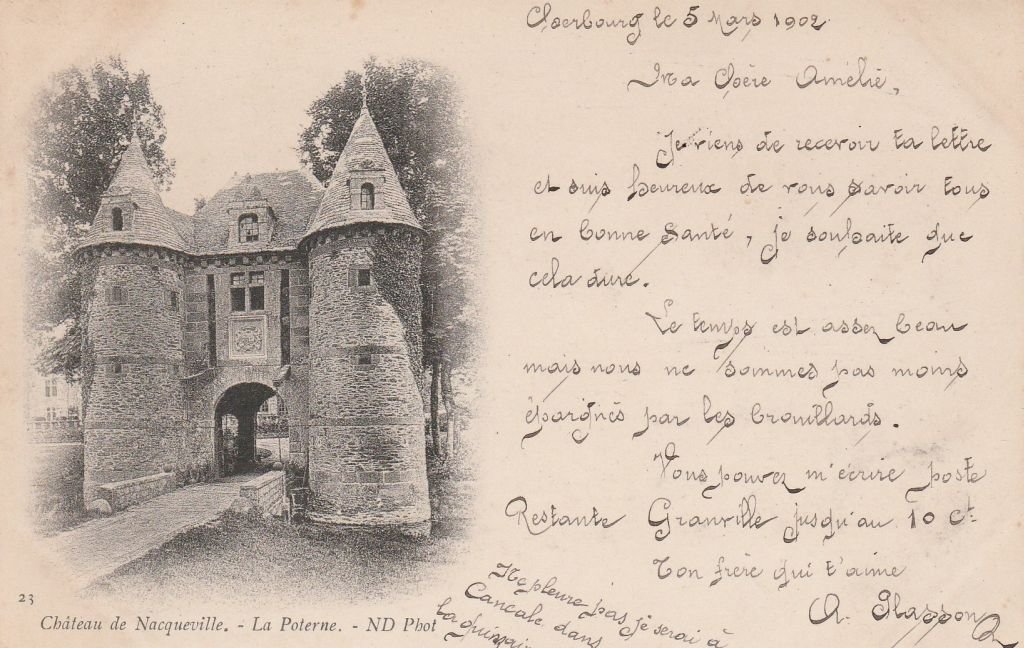 Cherbourg le 5 Mars 1902
Ma Chère Amélie,
Je viens de recevoir ta lettre
et suis heureux de vous savoir tous
en bonne santé, je souhaite que
cela dure.
Le temps est assez beau
mais nous ne sommes pas moins
épargnés par les brouillards.
Vous pouvez m'écrire poste
Restante Granville jusqu'au 10 ct
Ton frère qui t'aime
A. Glasson
Ne pleure pas je serai à
Cancale dans
la quinzai
23
Château de Nacqueville. - La Poterne. - ND Phot